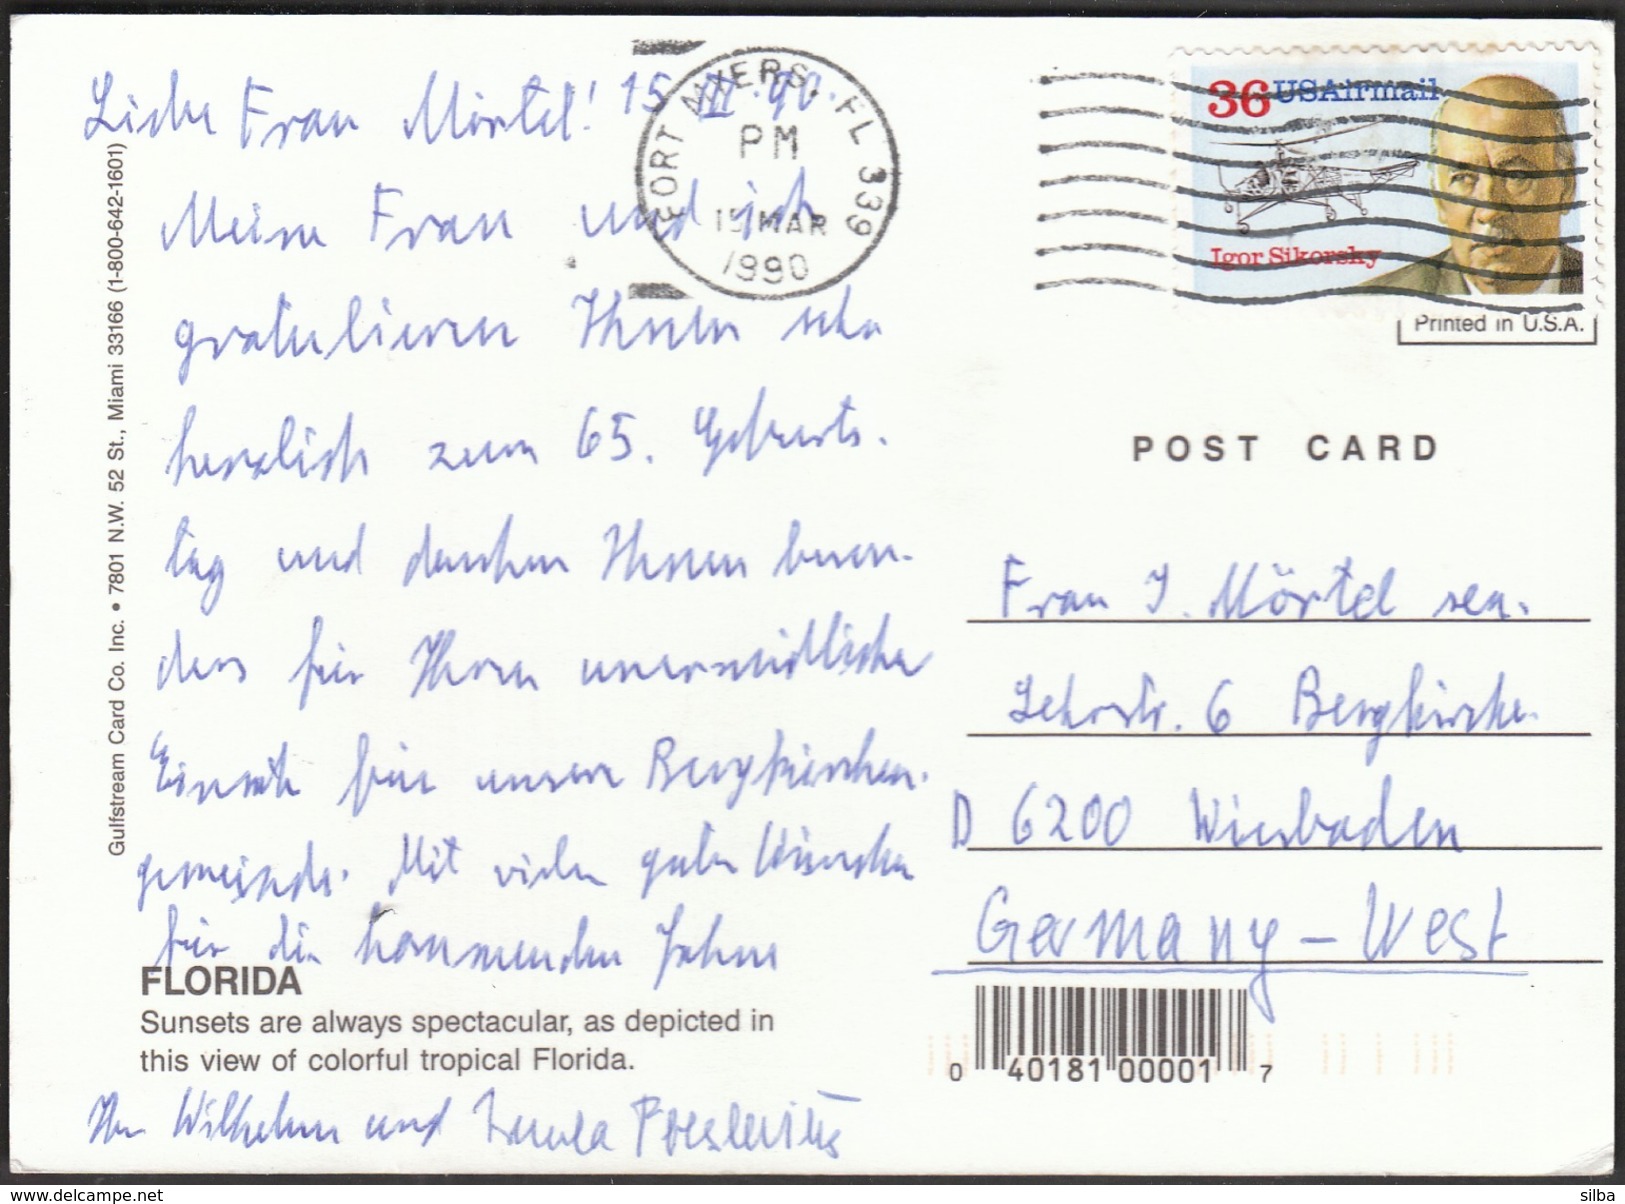 Liebe Frau Mörtel! 15. III. 90.
Meine Frau und ich
gratulieren Ihnen sehr
herzlich zum 65. Geburts-
tag und danken Ihnen beson-
ders für Ihren unermüdlichen
Einsatz für unsere Bergkirchen-
gemeinde. Mit vielen guten Wünschen
für die kommenden Jahre
FLORIDA
Sunsets are always spectacular, as depicted in
this view of colorful tropical Florida.
Ihr Wilhelm und
Gulfstream Card Co. Inc. • 7801 N.W. 52 St., Miami 33166 (1-800-642-1601)
FORT MYERS, FL 339
PM
15 MAR
1990
36 USAirmail
Igor Sikorsky
Printed in U.S.A.
POST CARD
Frau I. Mörtel sen.
Lehrstr. 6 Bergkirche
D 6200 Wiesbaden
Germany – West
0 40181 00001 7
delcampe.net
silba